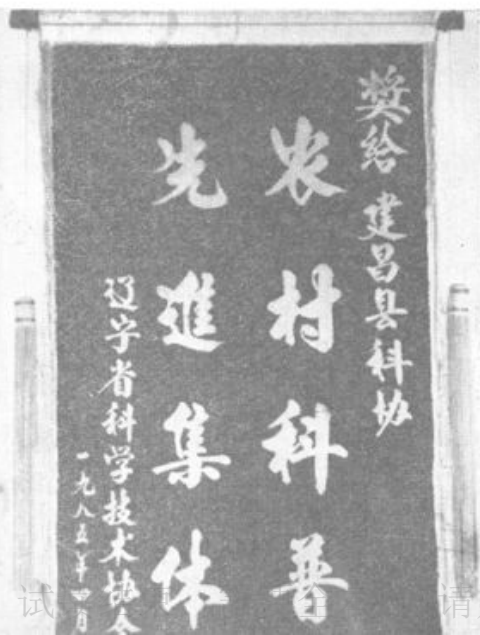 奬给建昌县科协
农村科普
先進集体
辽宁省科学技术协会
一九八五年